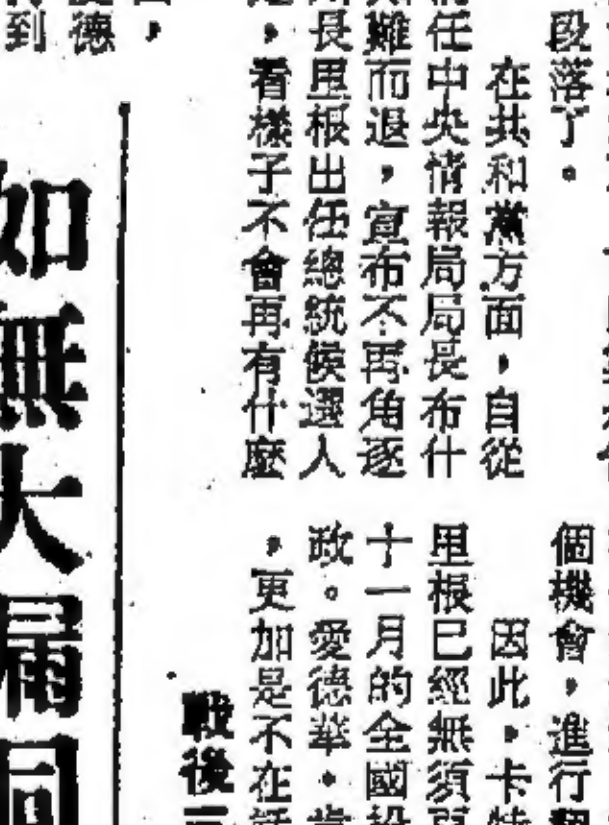 段落了。
在共和黨方面，自從
任中央情報局局長布什
難而退，宣布不再角逐
長里根出任總統候選人
，看樣子不會再有什麼
個機會，進行
因此，卡特
里根已經無須
十一月的全國
政。愛德華·肯
，更加是不在話
戰後
德，
到
如無大漏洞